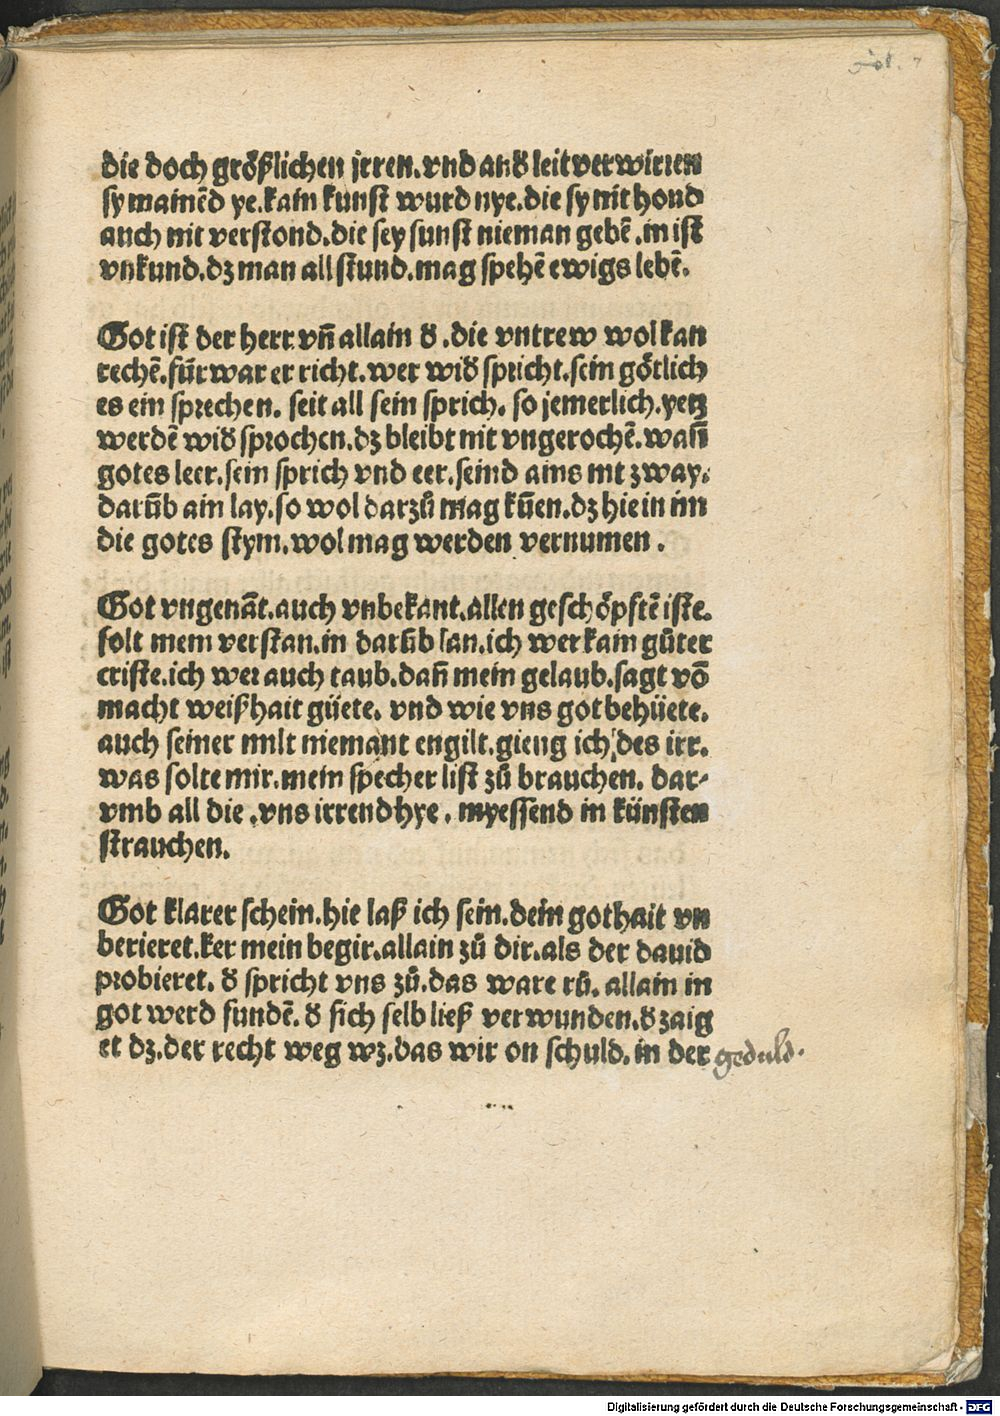 die doch größlichen jrren.vnd and̕ leit verwirren
sy mainēd ye.kain kunst wurd nye.die sy nit hond
auch nit verstond.die sey sunst nieman gebē.in ist
vnkund.dz man all stund.mag spehē ewigs lebē.
Got ist der herr vn̄ allain d̕.die vntrew wol kan
rechē.fürwar er richt.wer wid̕ spricht.sein götlich
es ein sprechen. seit all sein sprich. so jemerlich.yetz
werdē wid̕ sprochen.dz bleibt nit vngerochē.wan̄
gotes leer.sein sprich vnd eer.seind ains nit zway.
darūb ain lay.so wol darzů mag kūen.dz hie in im
die gotes stym.wol mag werden vernumen.
Got vngenāt.auch vnbekant.allen geschöpftē iste.
solt mein verstan.in darūb lan.ich wer kain gůter
criste.ich wer auch taub.dan̄ mein gelaub.sagt vō
macht weißhait güete. vnd wie vns got behüete.
auch seiner milt niemant engilt.gieng ich des irr.
was solte mir.mein specher list zů brauchen. dar-
vmb all die.vns irrend hye. myessend in künsten
strauchen.
Got klarer schein.hie laß ich sein.dein gothait vn
berieret.ker mein begir.allain zů dir.als der dauid
probieret. d̕ spricht vns zů.das ware rů. allain in
got werd fundē. d̕ sich selb ließ verwunden.d̕ zaig
et dz.der recht weg wz.das wir on schuld.in der geduld.
Digitalisierung gefördert durch die Deutsche Forschungsgemeinschaft - DFG